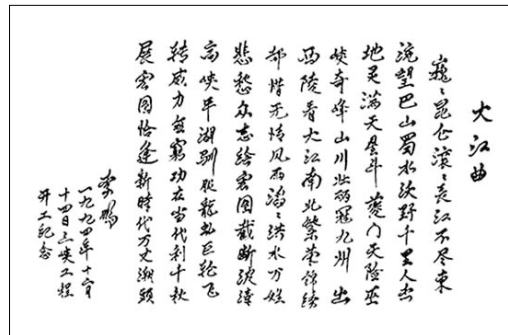 大江曲
巍巍昆仑滚滚长江不尽东
流望巴山蜀水沃野千里人杰
地灵满天星斗夔门天险巫
峡奇峰山川壮丽冠九州出
西陵看大江南北繁荣锦绣
都惜无情风雨滔滔洪水万姓
悲愁众志绘宏图截断波涛
高峡平湖驯服龙虬巨轮飞
转威力无穷功在当代利千秋
展宏图恰逢新时代万丈潮头
李鹏
一九九四年十二月
十四日三峡工程
开工纪念